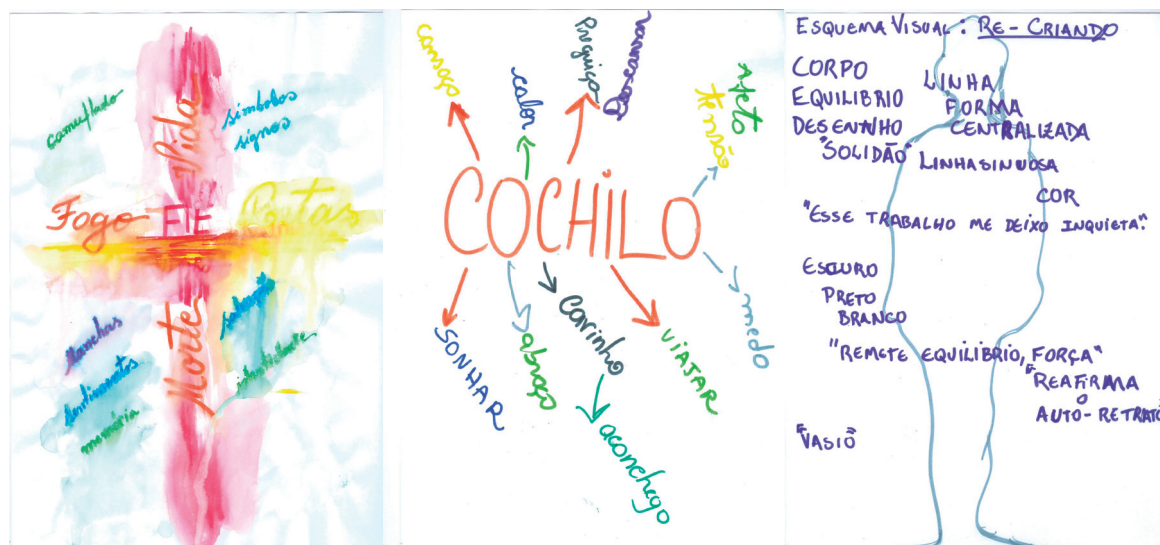 camuflado
Vida
símbolos
signos
Fogo
FÉ
Morte
Manchas
sentimentos
memória
identidade
cansaço
calor
preguiça
Descanso
Afeto
tensão
COCHILO
SONHAR
abraço
Carinho
aconchego
VIAJAR
medo
ESQUEMA VISUAL: RE-CRIANDO
CORPO LINHA
EQUILIBRIO FORMA
DESENHO CENTRALIZADA
"SOLIDÃO" LINHA SINUOSA
COR
"ESSE TRABALHO ME DEIXO INQUIETA."
ESCURO
PRETO
BRANCO
"REMETE EQUILIBRIO, FORÇA"
"REAFIRMA
O
AUTO-RETRATO
"VASIO"